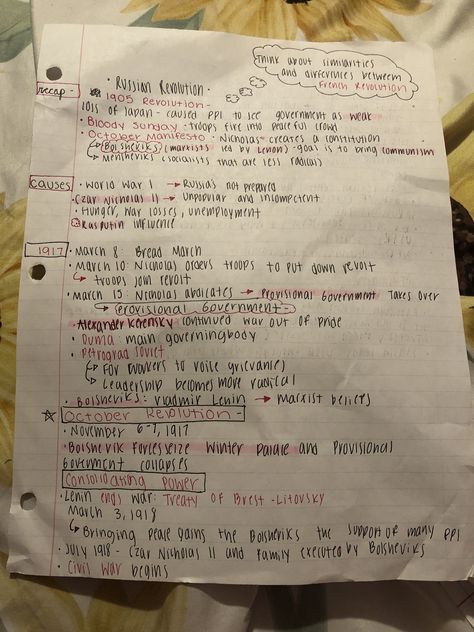 Think about similarities
and differences between
French Revolution
recap-
· Russian Revolution ·
1905 Revolution -
loss of Japan - caused ppl to see government as weak
· Bloody Sunday - troops fire into peaceful crowds
· October Manifesto - Nicholas creates a constitution
↳ Bolsheviks (marxists led by Lenin) - goal is to bring communism
↳ Mensheviks (socialists that are less radical)
causes
· World War 1 → Russia's not prepared
· Czar Nicholas II → Unpopular and incompetent
· Hunger, War losses, unemployment
Rasputin influence
1917
· March 8: Bread March
· March 10: Nicholas orders troops to put down revolt
↳ troops join revolt
· March 15: Nicholas abdicates → Provisional Government Takes over
↳ Provisional Government -
· Alexander Kerensky continued war out of pride
· Duma: main governing body
· Petrograd Soviet
↳ For workers to voice grievances
↳ Leadership becomes more radical
· Bolsheviks: Vladmir Lenin → Marxist beliefs
☆ October Revolution -
· November 6-7, 1917
· Bolshevik Forces seize Winter Palace and Provisional
Government collapses
Consolidating Power
· Lenin ends war: Treaty of Brest-Litovsky
March 3, 1918
↳ Bringing peace gains the Bolsheviks the support of many ppl
· July 1918 - Czar Nicholas II and Family executed by Bolsheviks
· Civil War begins